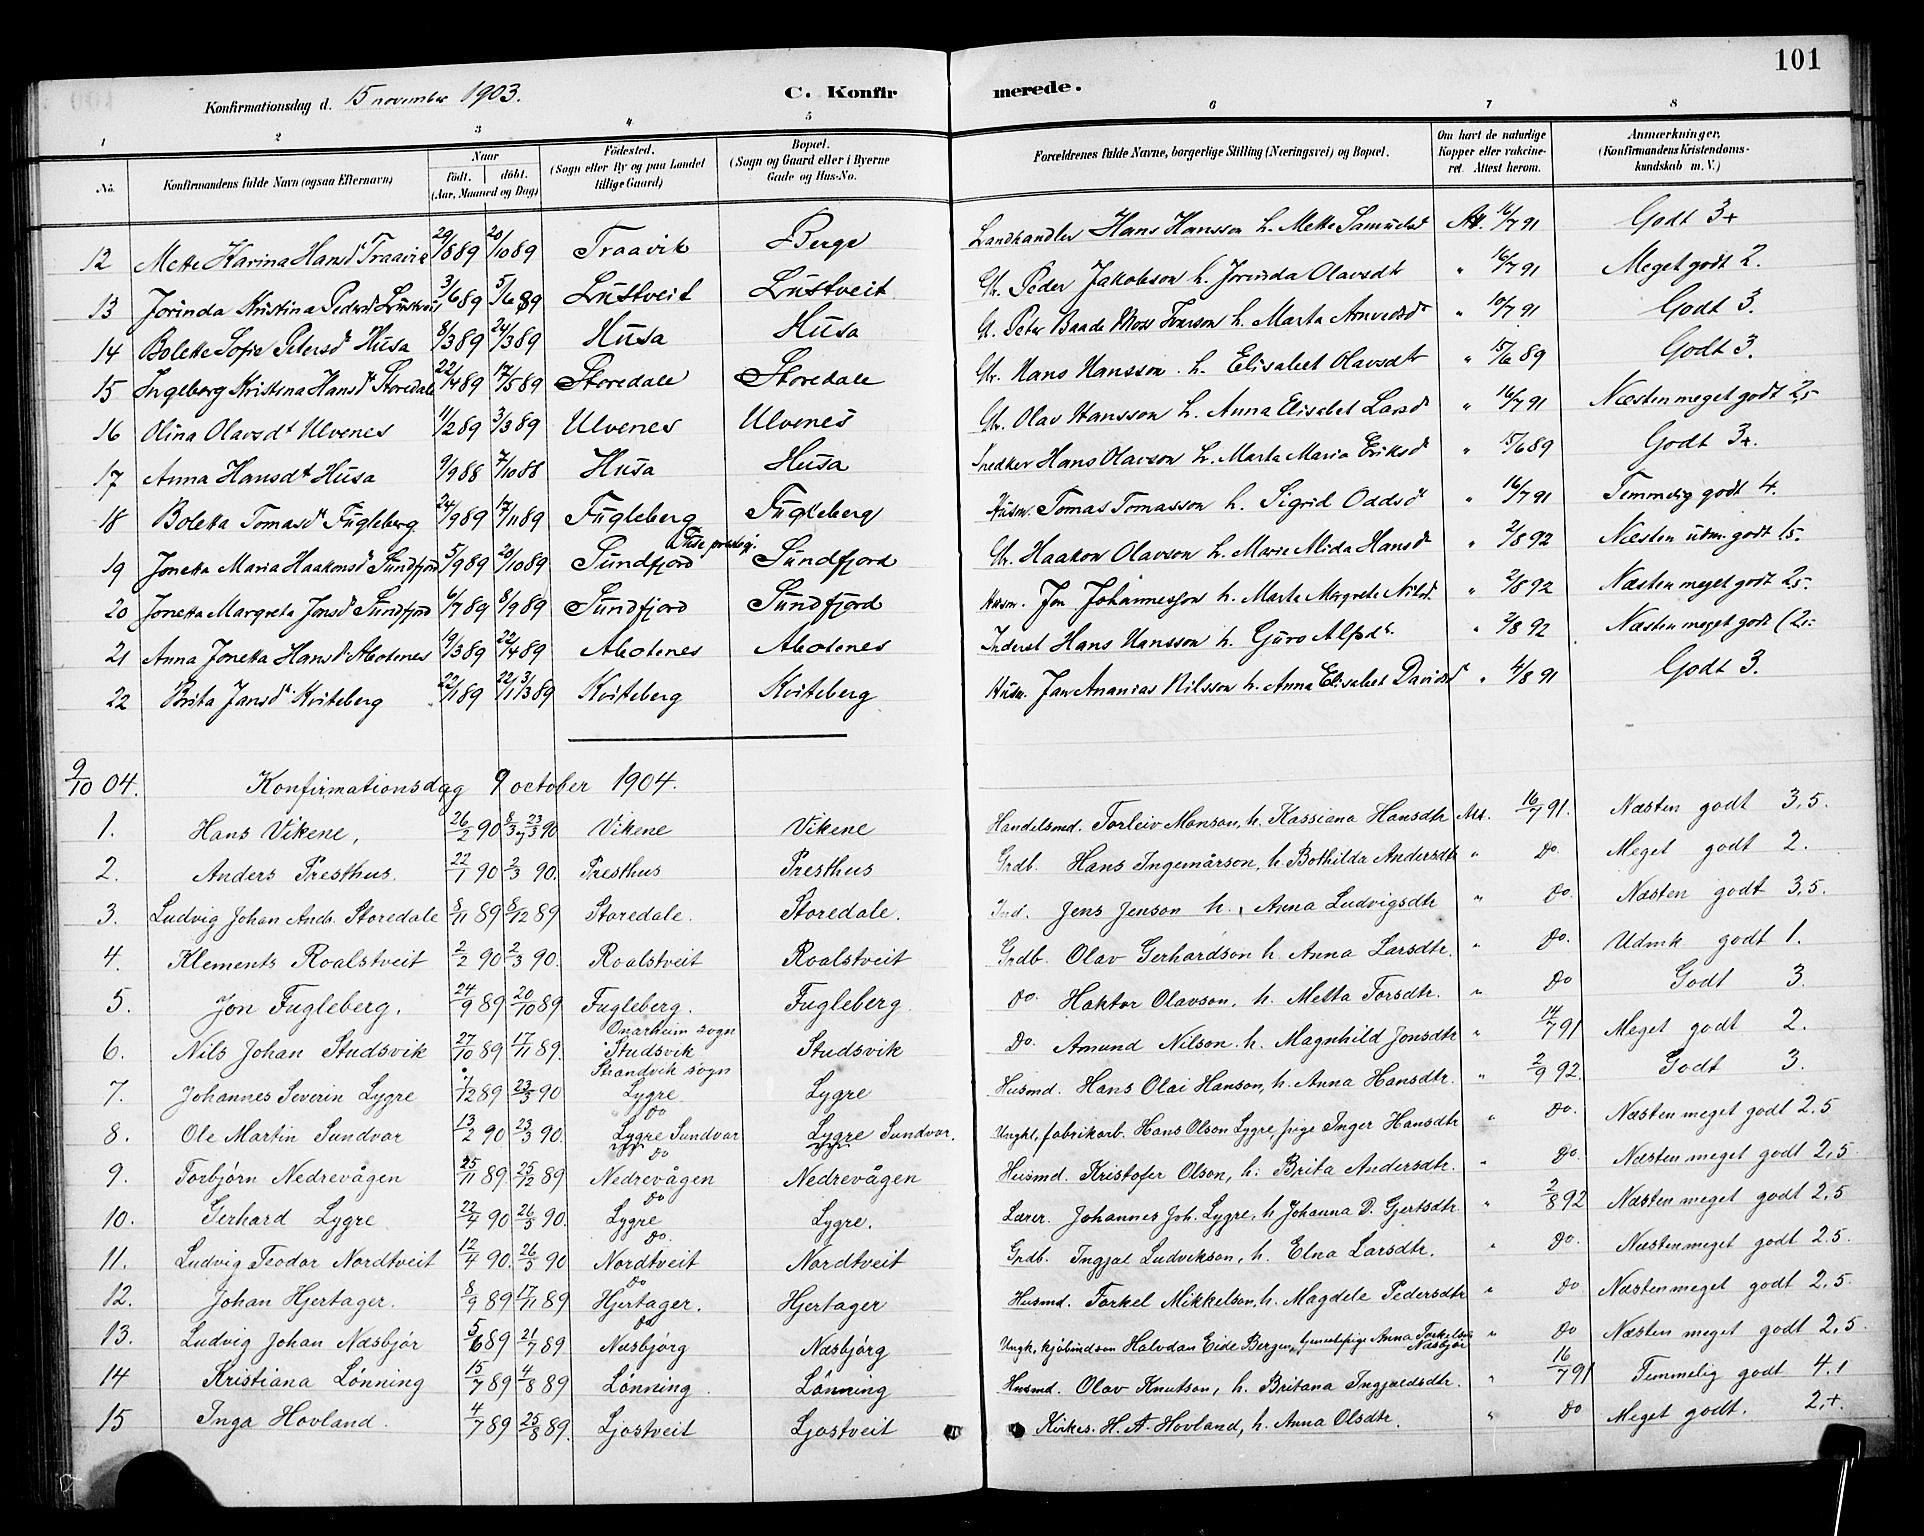 101
Konfirmationsdag d. 15 november 1903. C. Konfirmerede.
1 2 3 4 5 6 7 8
No. Konfirmandens fulde Navn (ogsaa Efternavn) Naar födt. döbt. (Aar, Maaned og Dag) Födested. (Sogn eller By og paa Landet tillige Gaard) Bopæl. (Sogn og Gaard eller i Byerne Gade og Hus-No. Forældrenes fulde Navne, borgerlige Stilling (Næringsvei) og Bopæl. Om havt de naturlige Kopper eller vakcineret. Attest herom. Anmærkninger. (Konfirmandens Kristendomskundskab m. V.)
12 Mette Karina Hansd. Traavik 29/8 89 20/10 89 Traavik Berge Landhandler Hans Hansson h. Mette Samuelsd Att. 16/7 91 Godt 3+
13 Jorinda Kristina Pedersd 3/6 89 5/6 89 Lustveit Lustveit Gr. Peder Jakobson h. Jorinda Olavsdt " 16/7 91 Meget godt 2.
14 Bolette Sofie Petersd Husa 8/3 89 24/3 89 Husa Husa G. Peter Baade Moss Iverson h. Marta " 10/7 91 Godt 3.
15 Ingeborg Kristina Hansdt Storedale 22/4 89 17/5 89 Storedale Storedale Gr. Hans Hansson h. Elisabet Olavsdtr " 15/6 89 Godt 3.
16 Olina Olavsdt Ulvenes 11/2 89 3/3 89 Ulvenes Ulvenes Gr. Olav Hansson h. Anna Elisabet Larsd " 16/7 91 Næsten meget godt 2,-
17 Anna Hansdt Husa 9/9 88 7/10 88 Husa Husa Snedker Hans Olavson h. Marta Maria Eriksd " 15/6 89 Godt 3+.
18 Boletta Tomasdt Fugleberg 24/9 89 17/11 89 Fugleberg Fugleberg Husm. Tomas Tomasson h. Sigrid Oddsdt " 16/7 91 Temmelig godt 4.
19 Jonetta Maria Haakonsd Sundfjord 5/9 89 20/10 89 Sundfjord Sundfjord Gr. Haakon Olavson h. Marie Alida Hansd " 2/8 92 Næsten udm. godt 1,5-
20 Jonetta Margreta Jonsd Sundfjord 6/7 89 8/9 89 Sundfjord Sundfjord Husm. Jon Johannesson h. Marta Margrete Nilsd. " 2/8 92 Næsten meget godt 2,-
21 Anna Jonetta Hansd. Abotenes 19/3 89 22/4 89 Abotenes Abotenes Inderst Hans Hansson h. Guro Alfsdt. " 2/8 92 Næsten meget godt (2,-
22 Brita Jansdt. Kviteberg 22/1 89 3/3 89 Kviteberg Kviteberg Husm. Jan Ananias Nilsson h. Anna Elisabet Davidsd " 4/8 91 Godt 3.
9/10 04. Konfirmationsdag 9 october 1904.
1. Hans Vikene, 26/2 90 8/3 23/3 90 Vikene Vikene Handelsmd. Torleiv Monson, h. Kassiana Hansdtr Att. 16/7 91. Næsten godt 3,5.
2. Anders Presthus. 22/1 90 2/3 90. Presthus Presthus Grdb. Hans Ingemårson, h. Bothilda Andersdtr " Do. Meget godt 2.
3. Ludvig Johan Andr. Storedale 8/11 89 8/12 89 Storedale. Storedale. Ind. Jens Jenson h. Anna Ludvigsdtr " Do. Næsten godt 3,5.
4. Klements Roalstveit 2/2 90 2/3 90. Roalstveit Roalstveit Grdb. Olav Gerhardson h. Anna Larsdtr. " Do. Udmk godt 1.
5. Jon Fugleberg. 24/9 89 20/10 89 Fugleberg. Fugleberg Do. Haktor Olavson, h. Metta Torsdtr. " Do Godt 3.
6. Nils Johan Studsvik 27/10 89 17/11 89. Onarheim sogn Studsvik Studsvik Do. Amund Nilson h. Magnhild Jonsdtr " 14/7 91 Meget godt 2.
7. Johannes Severin Lygre /12 89 23/3 90 Strandvik sogn Lygre Lygre Husmd. Hans Olai Hanson, h. Anna Hansdtr. " 2/9 92. Godt 3.
8. Ole Martin Sundvor 13/2 90. 23/3 90. Do Lygre Sundvor Lygre Sundvor. Ungkl, fabrikarb. Hans Olson Lygre, pige Inger Hansdtr " Do. Næsten meget godt 2,5
9. Torbjørn Nedrevågen 25/11 89. 25/12 89 Do Nedrevågen Nedrevågen Husmd. Kristofer Olson, h. Brita Andersdtr. " Do. Næsten meget godt 2,5
10. Gerhard Lygre 22/4 90 26/5 90. Do Lygre Lygre. Lærer. Johannes Joh. Lygre, h Johanna D. Gjertsdtr. " 2/8 92 Næsten meget godt 2,5
11. Ludvig Teodor Nordtveit 12/4 90. 26/5 90 Do. Nordtveit Nordtveit Grdb. Ingjal Ludvikson, h. Elna Larsdtr. " Do. Næsten meget godt 2,5.
12. Johan Hjertager. 8/9 89 17/11 89 Do Hjertager. Hjertager Husmd. Torkel Mikkelson, h. Magdele Pedersdtr " Do Næsten meget godt 2,5.
13. Ludvig Johan Næsbjør 5/6 89 21/7 89 Do Næsbjørg Næsbjørg Ungk. kjøbmdson Halvdan Eide Bergen, tjenestpige Anna Torkelsd Næsbjør " Do Næsten meget godt 2,5.
14 Kristiana Lønning 15/7 89 4/8 89 Lønning. Lønning Husmd. Olav Knutson, h. Britana Ingjaldsdtr. " 16/7 91 Temmelig godt 4.
15 Inga Hovland. 4/7 89 25/8 89. Ljostveit Ljostveit Kirkes. H. A. Hovland, h. Anna Olsdtr. " Do Meget godt. 2,+.